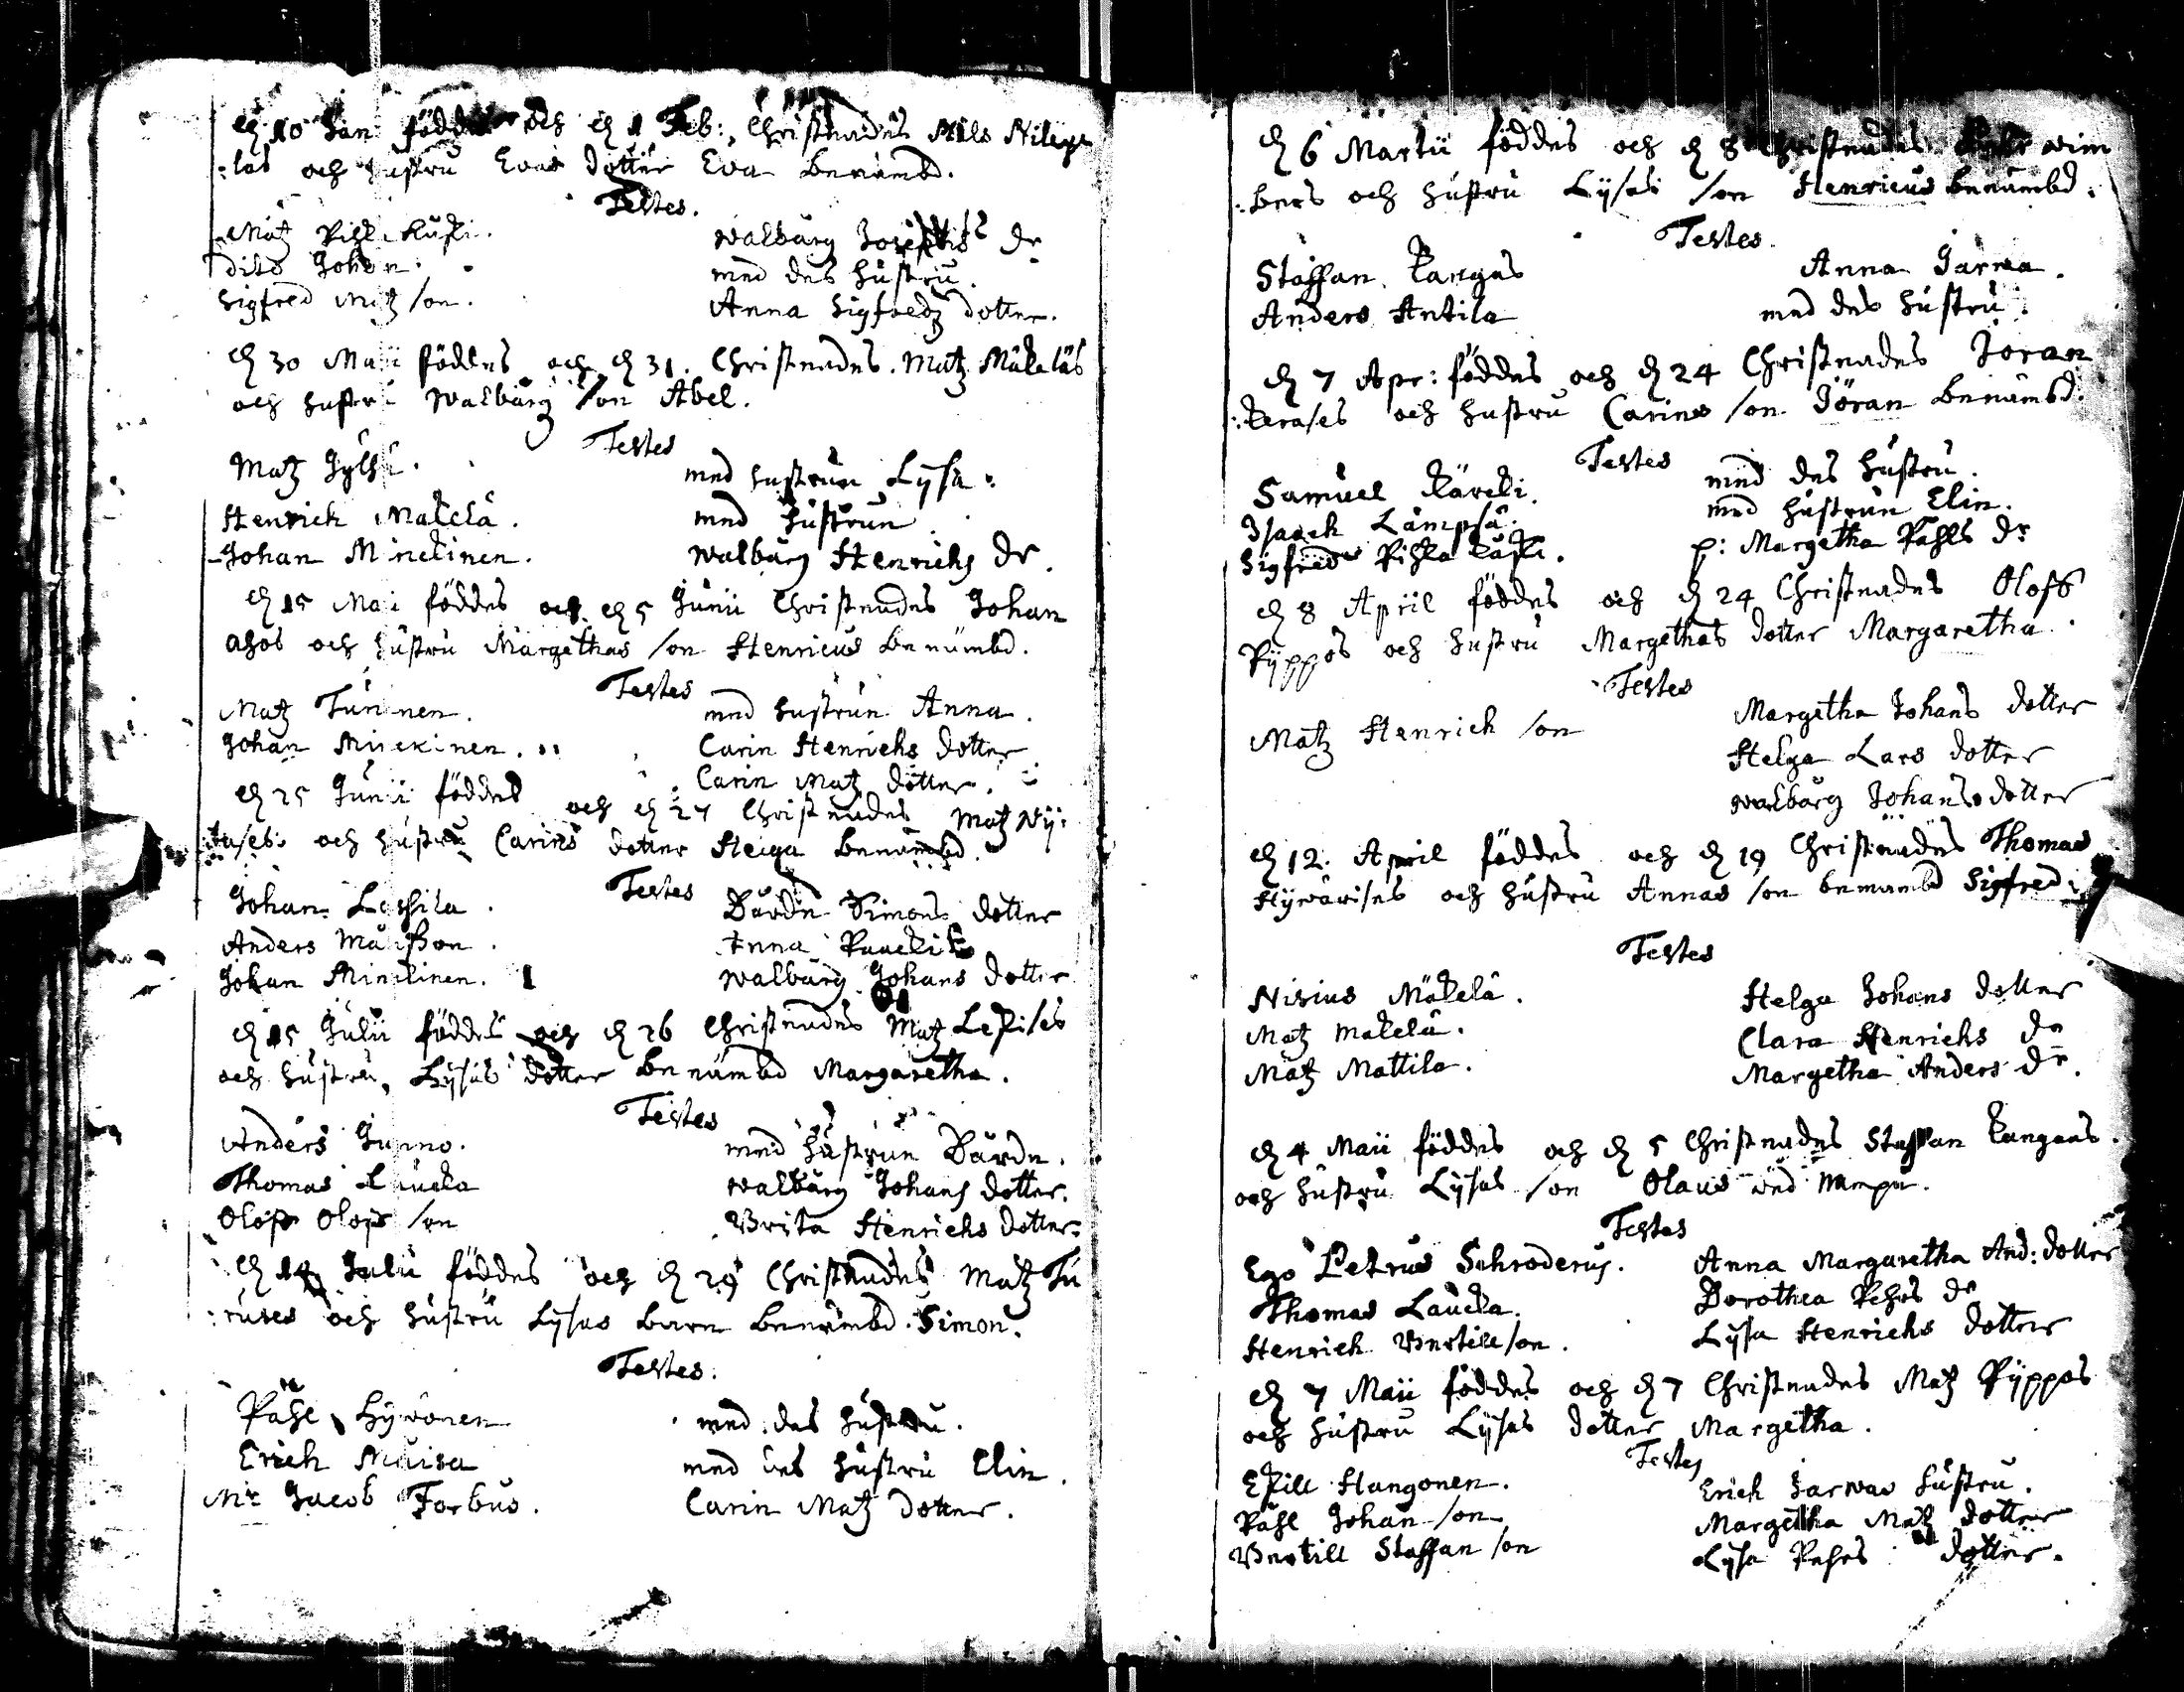 d 10 Jan föddes och d 1 Feb: Christnades Nils Nilex
:las och hustru Evas dotter Eva benämbd.
Testes.
Matz Pihlakuski. Walburg Josephs dr
dito Johan. med des hustru.
Sigfred Matz son. Anna Sigfredz dotter.
d 30 Maii föddes och d 31. Christnades. Matz Mäkeläs
och hustru Walburg son Abel.
Testes
Matz Gylsi. med hustrun Lysa.
Henrich Makelä. med hustrun
Johan Minckinen. Walburg Henrichs dr.
d 15 Maii föddes och d 5 Junii Christnades Johan
Ahos och hustru Margethas son Henricus benämbd.
Testes
Matz Turunen. med hustrun Anna.
Johan Minckinen. Carin Henrichs dotter
Carin Matz dotter.
d 25 Junii föddes och d 27 Christnades Matz Ny:
:tases och hustru Carins dotter Helga benämbd.
Testes
Johan Lassila. Bårdn Simons dotter
Anders Månsson. Anna
Johan Minckinen. Walburg Johans dotter
d 15 Julii föddes och d 26 Christnades Matz Leskises
och hustru, Lysas dotter benämbd Margaretha.
Testes
Anders Gunno. med hustrun Bårdn.
Thomas Laucka Walburg Johans dotter.
Oloff Olofs son Brita Henrichs dotter.
d 14 Julii föddes och d 29 Christnades Matz Tu
:ruses och hustru Lysas barn benämbd Simon.
Testes.
Påhl Hyvönen med des hustru.
Erich Muisa med des hustru Elin.
Mr Jacob Forbus. Carin Matz dotter.
d 6 Martii föddes och d 8 Christnades wim
:bers och hustru Lysas son Henricus benämbd.
Testes.
Staffan Kangas Anna Jarwa.
Anders Antila med des hustru.
d 7 Apr: föddes och d 24 Christnades Jöran
:Kerases och hustru Carins son Jöran benämbd.
Testes
Samuel Käreki. med des hustru.
Isaach Lämpsä. med hustrun Elin.
Sigfred Pihlakuski. p: Margetha Påhls dr
d 8 April föddes och d 24 Christnades Olofs
Pyppös och hustru Margethas dotter Margaretha.
Testes
Matz Henrich son Margetha Johans dotter
Helga Lars dotter
Walburg Johans dotter
d 12. April föddes och d 19 Christnades Thomas
Hywärises och hustru Annas son benämbd Sigfred:
Testes
Nisius Mäkelä. Helga Johans dotter
Matz Makelä. Clara Henrichs dr
Matz Mattila. Margetha Anders dr.
d 4 Maii föddes och d 5 Christnades Staffan Kangaas.
och hustru Lysas son Olaus wid nampn.
Testes
Ego Petrus Schroderus. Anna Margaretha And: dotter
Thomas Laucka. Dorothea Pehrs dr
Henrich Bertill son. Lysa Henrichs dotter
d 7 Maii föddes och d 7 Christnades Matz Pyppös
och hustru Lysas dotter Margetha.
Testes
Eskill Hangonen. Erich Jarwas hustru.
Påhl Johan son Margetha Matz dotter
Bertill Staffan son Lysa Pehrs dotter.